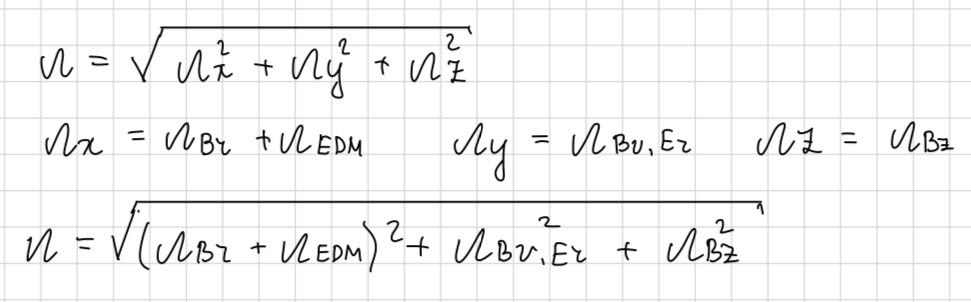 Ω = √(Ωx² + Ωy² + Ωz²)
Ωx = ΩBr + ΩEDM Ωy = ΩBv,Er Ωz = ΩBz
Ω = √((ΩBr + ΩEDM)² + ΩBv,Er² + ΩBz²)